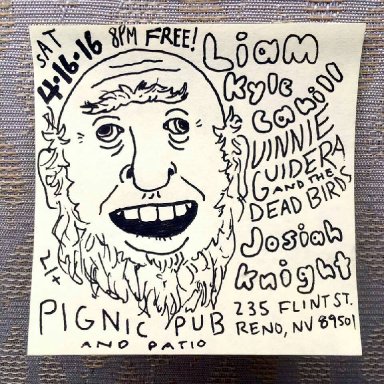 SAT
4·16·16
8PM FREE!
LiAM
Kyle
Cahill
VINNIE
GUIDERA
AND THE
DEAD BIRDS
Josiah
Knight
PIGNIC PUB
AND PATIO
235 FLINT ST.
RENO, NV 89501